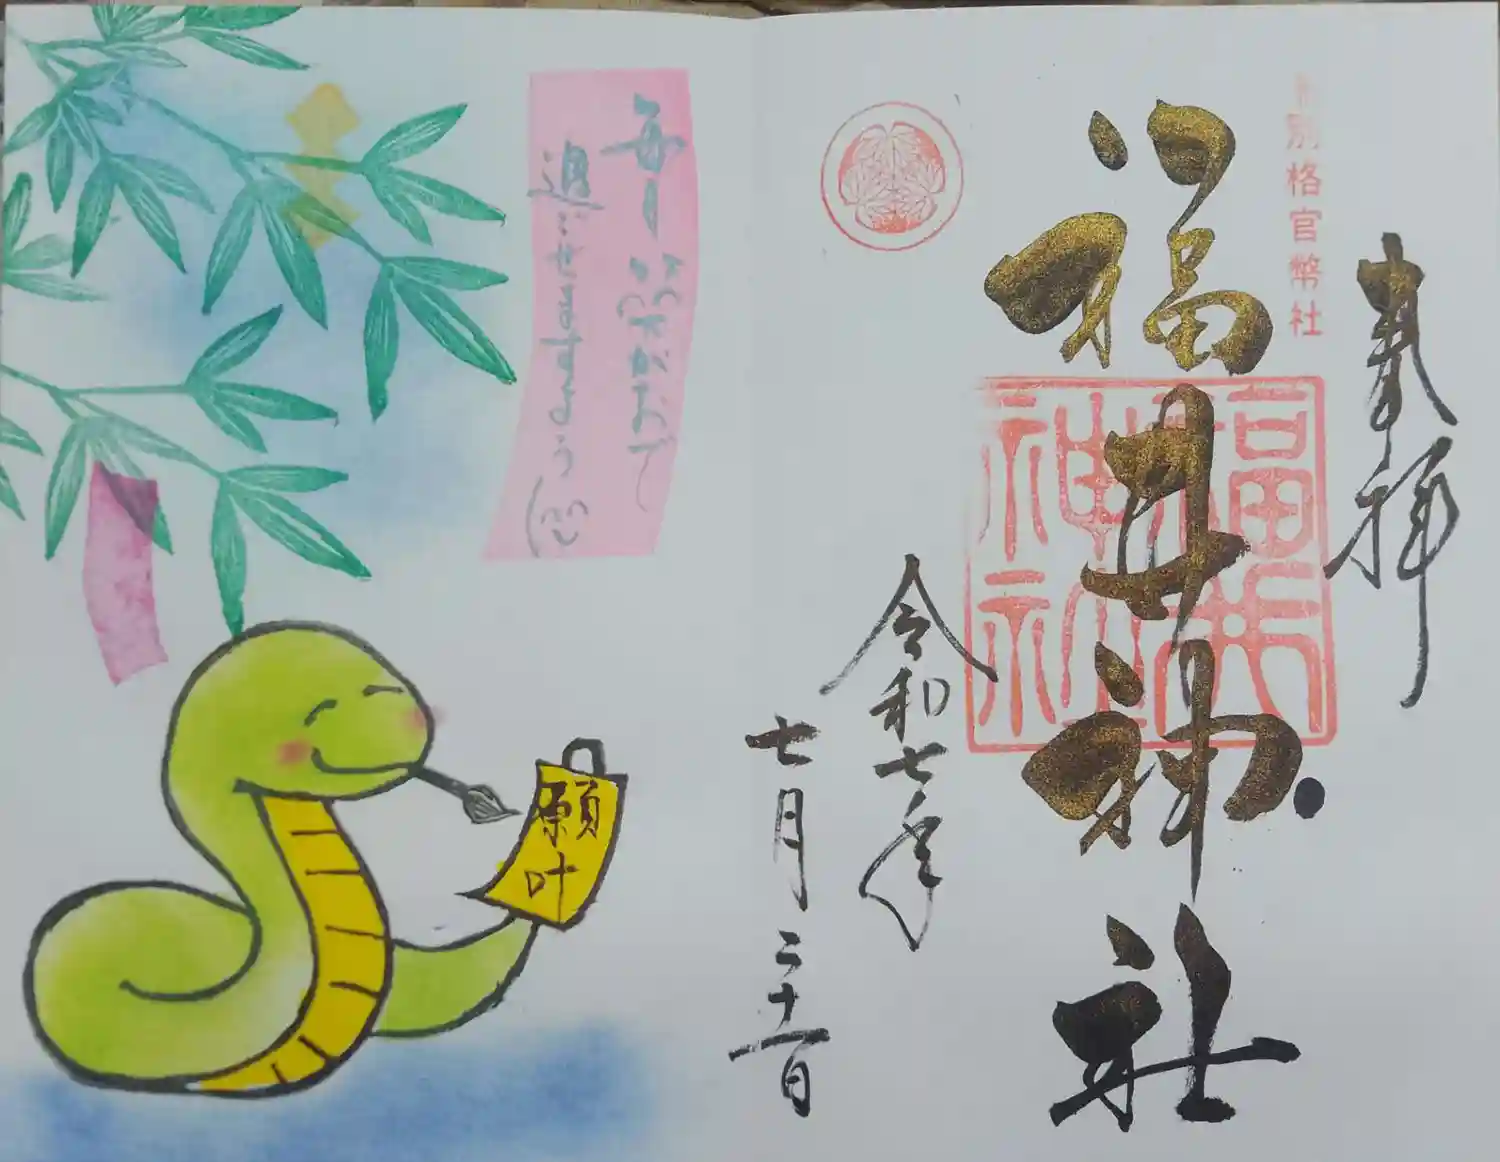 奉拝
別格官幣社
福井神社
福井神社
令和七年
七月二十一日
毎日笑がおで
過ごせますように
願
叶